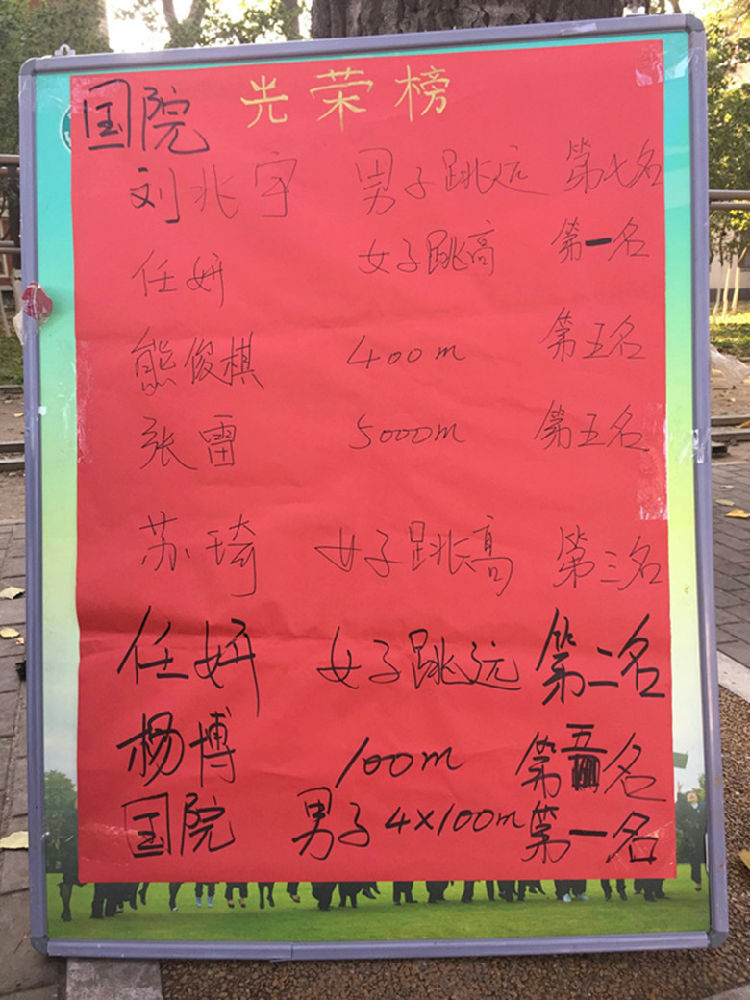 光荣榜
国院
刘兆宇 男子跳远 第七名
任妍 女子跳高 第一名
熊俊棋 400m 第五名
张雷 5000m 第五名
苏琦 女子跳高 第三名
任妍 女子跳远 第二名
杨博 100m 第五名
国院 男子4×100m 第一名